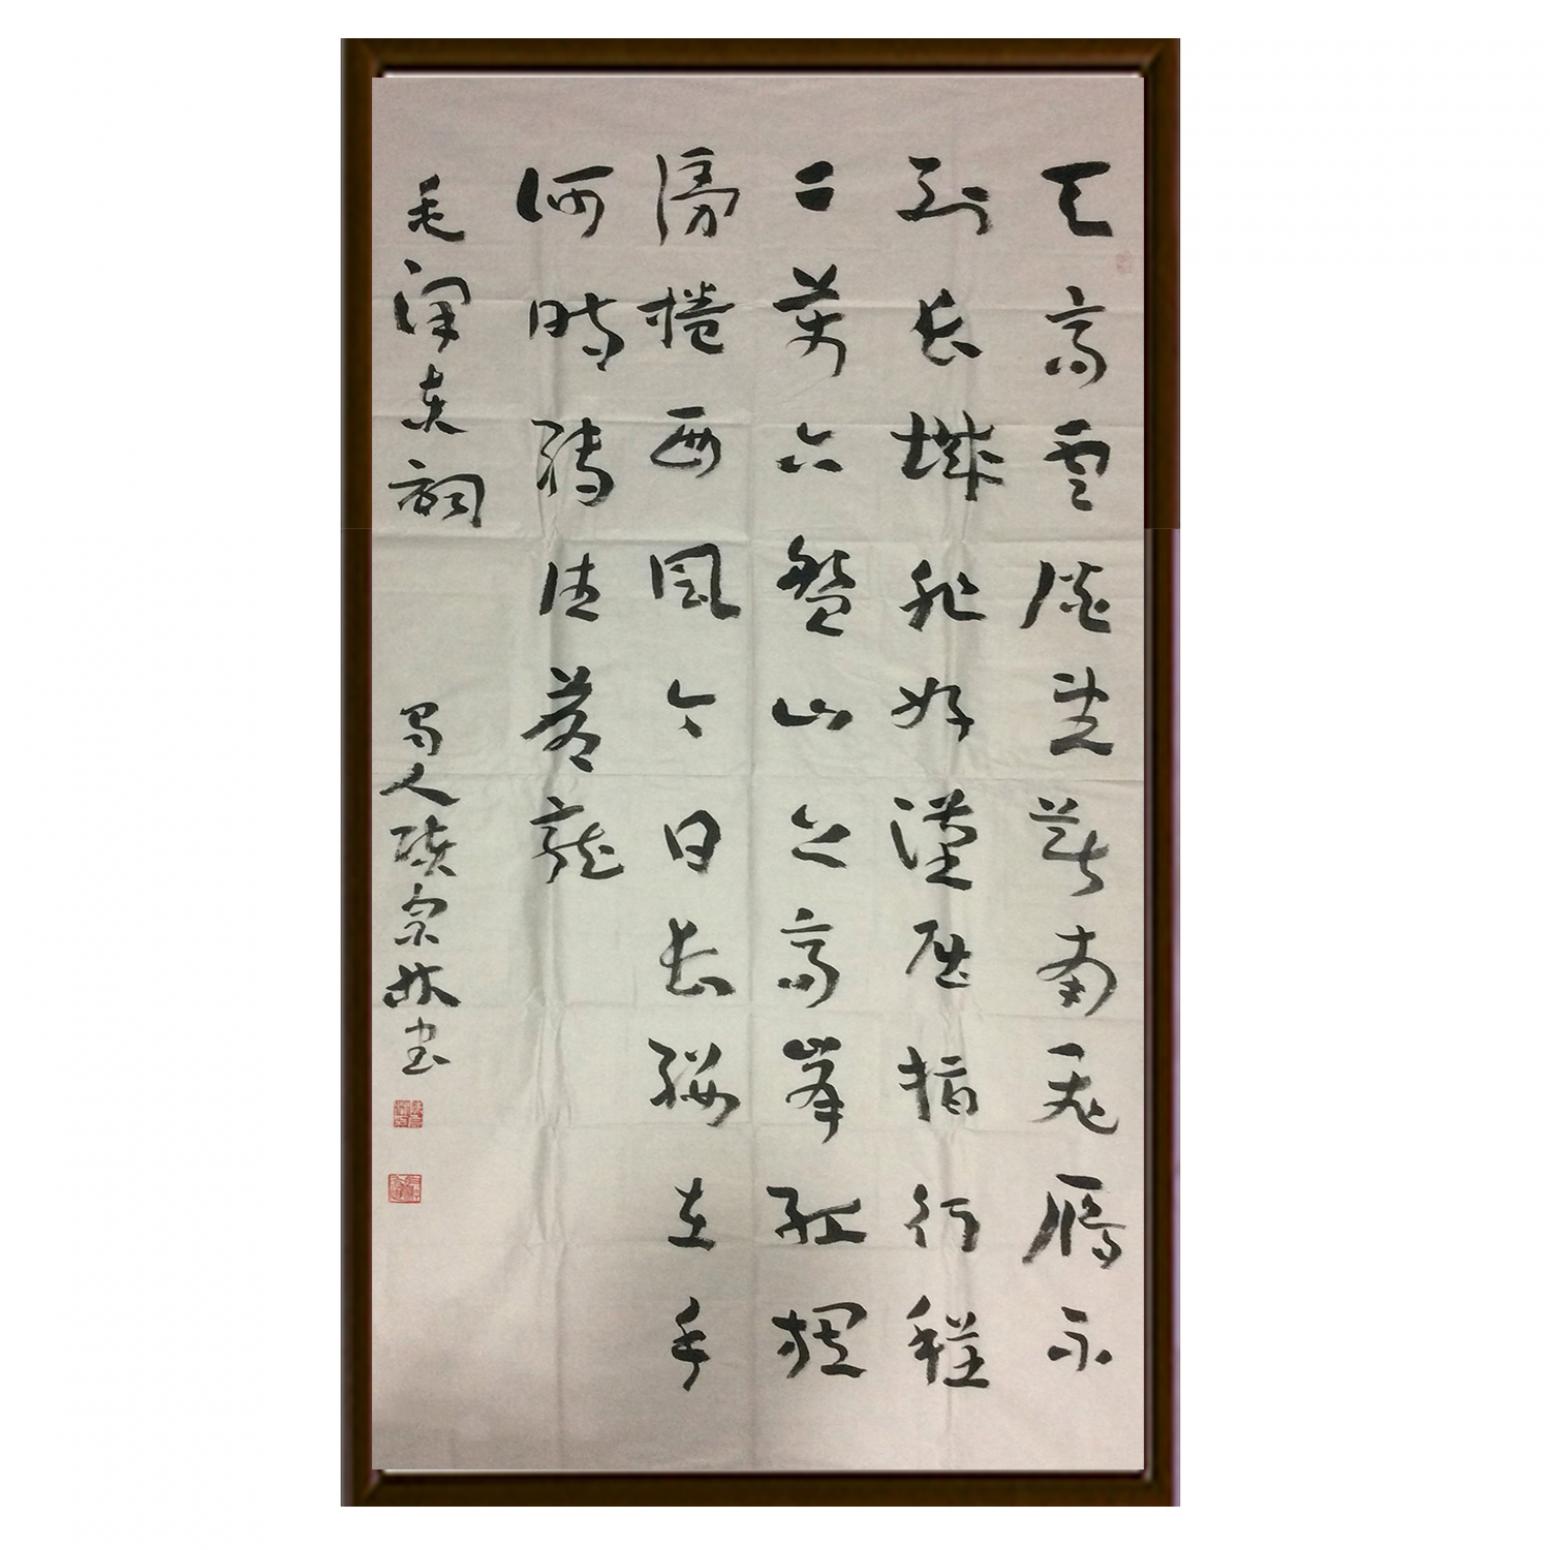 天高雲淡望斷南飛雁不
到長城非好漢屈指行程
二萬六盤山上高峯紅旗
漫捲西風今日長纓在手
何時縛住蒼龍
毛澤東詞 蜀人宗林書